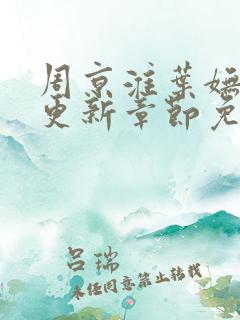 周京淮叶妩
更新章節免
吕瑞
未经同意禁止转载